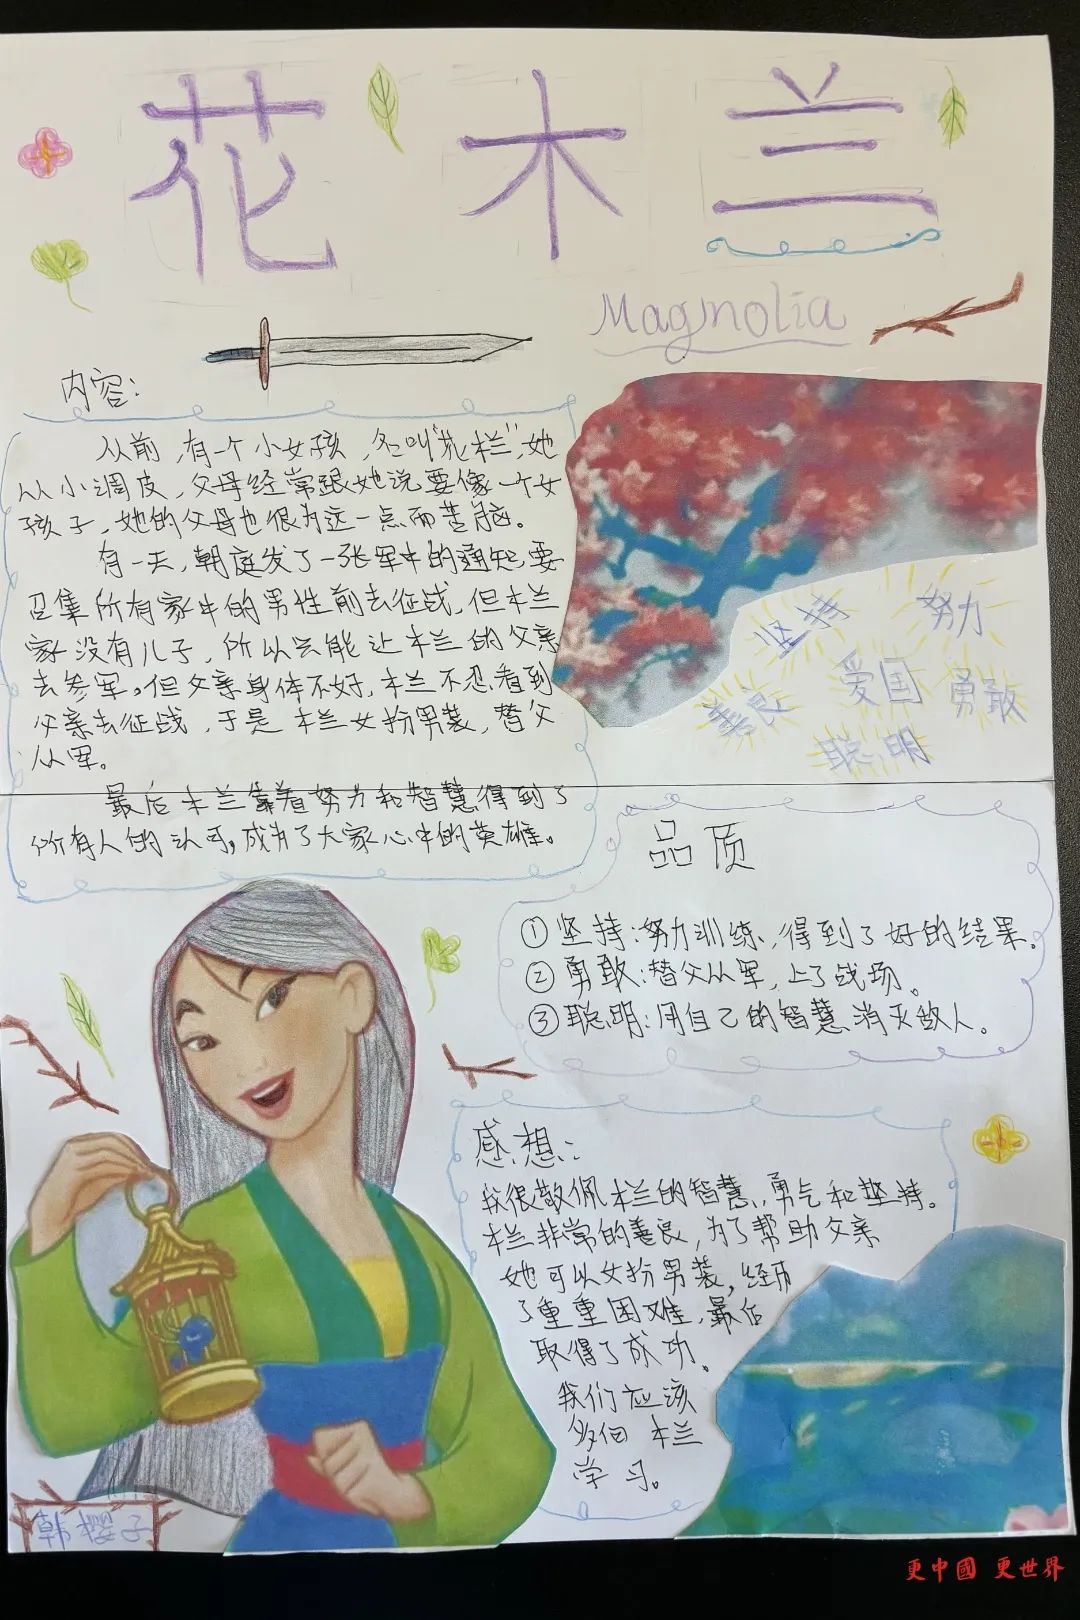 花木兰
Magnolia
内容：
从前，有一个小女孩，名叫“花木兰”，她
从小调皮，父母经常跟她说要像一个女
孩子，她的父母也很为这一点而苦恼。
有一天，朝庭发了一张军中的通知，要
召集所有家中的男性前去征战，但木兰
家没有儿子，所以只能让木兰的父亲
去参军。但父亲身体不好，木兰不忍看到
父亲去征战，于是木兰女扮男装，替父
从军。
最后木兰靠着努力和智慧得到了
所有人的认可，成为了大家心中的英雄。
坚持
努力
善良
爱国
勇敢
聪明
品质
①坚持：努力训练，得到了好的结果。
②勇敢：替父从军，上了战场。
③聪明：用自己的智慧消灭敌人。
感想：
我很敬佩木兰的智慧，勇气和坚持。
木兰非常的善良，为了帮助父亲
她可以女扮男装，经历
了重重困难，最后
取得了成功。
我们应该
多向木兰
学习。
韩樱子
更中國 更世界